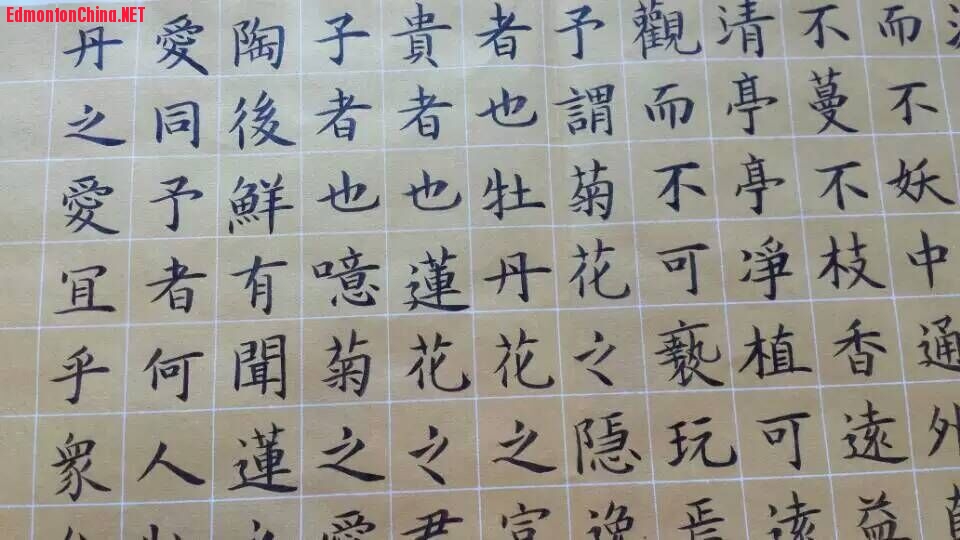 EdmontonChina.NET
而不妖中通外
不蔓不枝香遠益
清亭亭凈植可遠
觀而不可褻玩焉
予謂菊花之隐逸
者也牡丹花之富
貴者也蓮花之君
子者也噫菊之愛
陶後鮮有聞蓮之
愛同予者何人牡
丹之愛宜乎衆矣